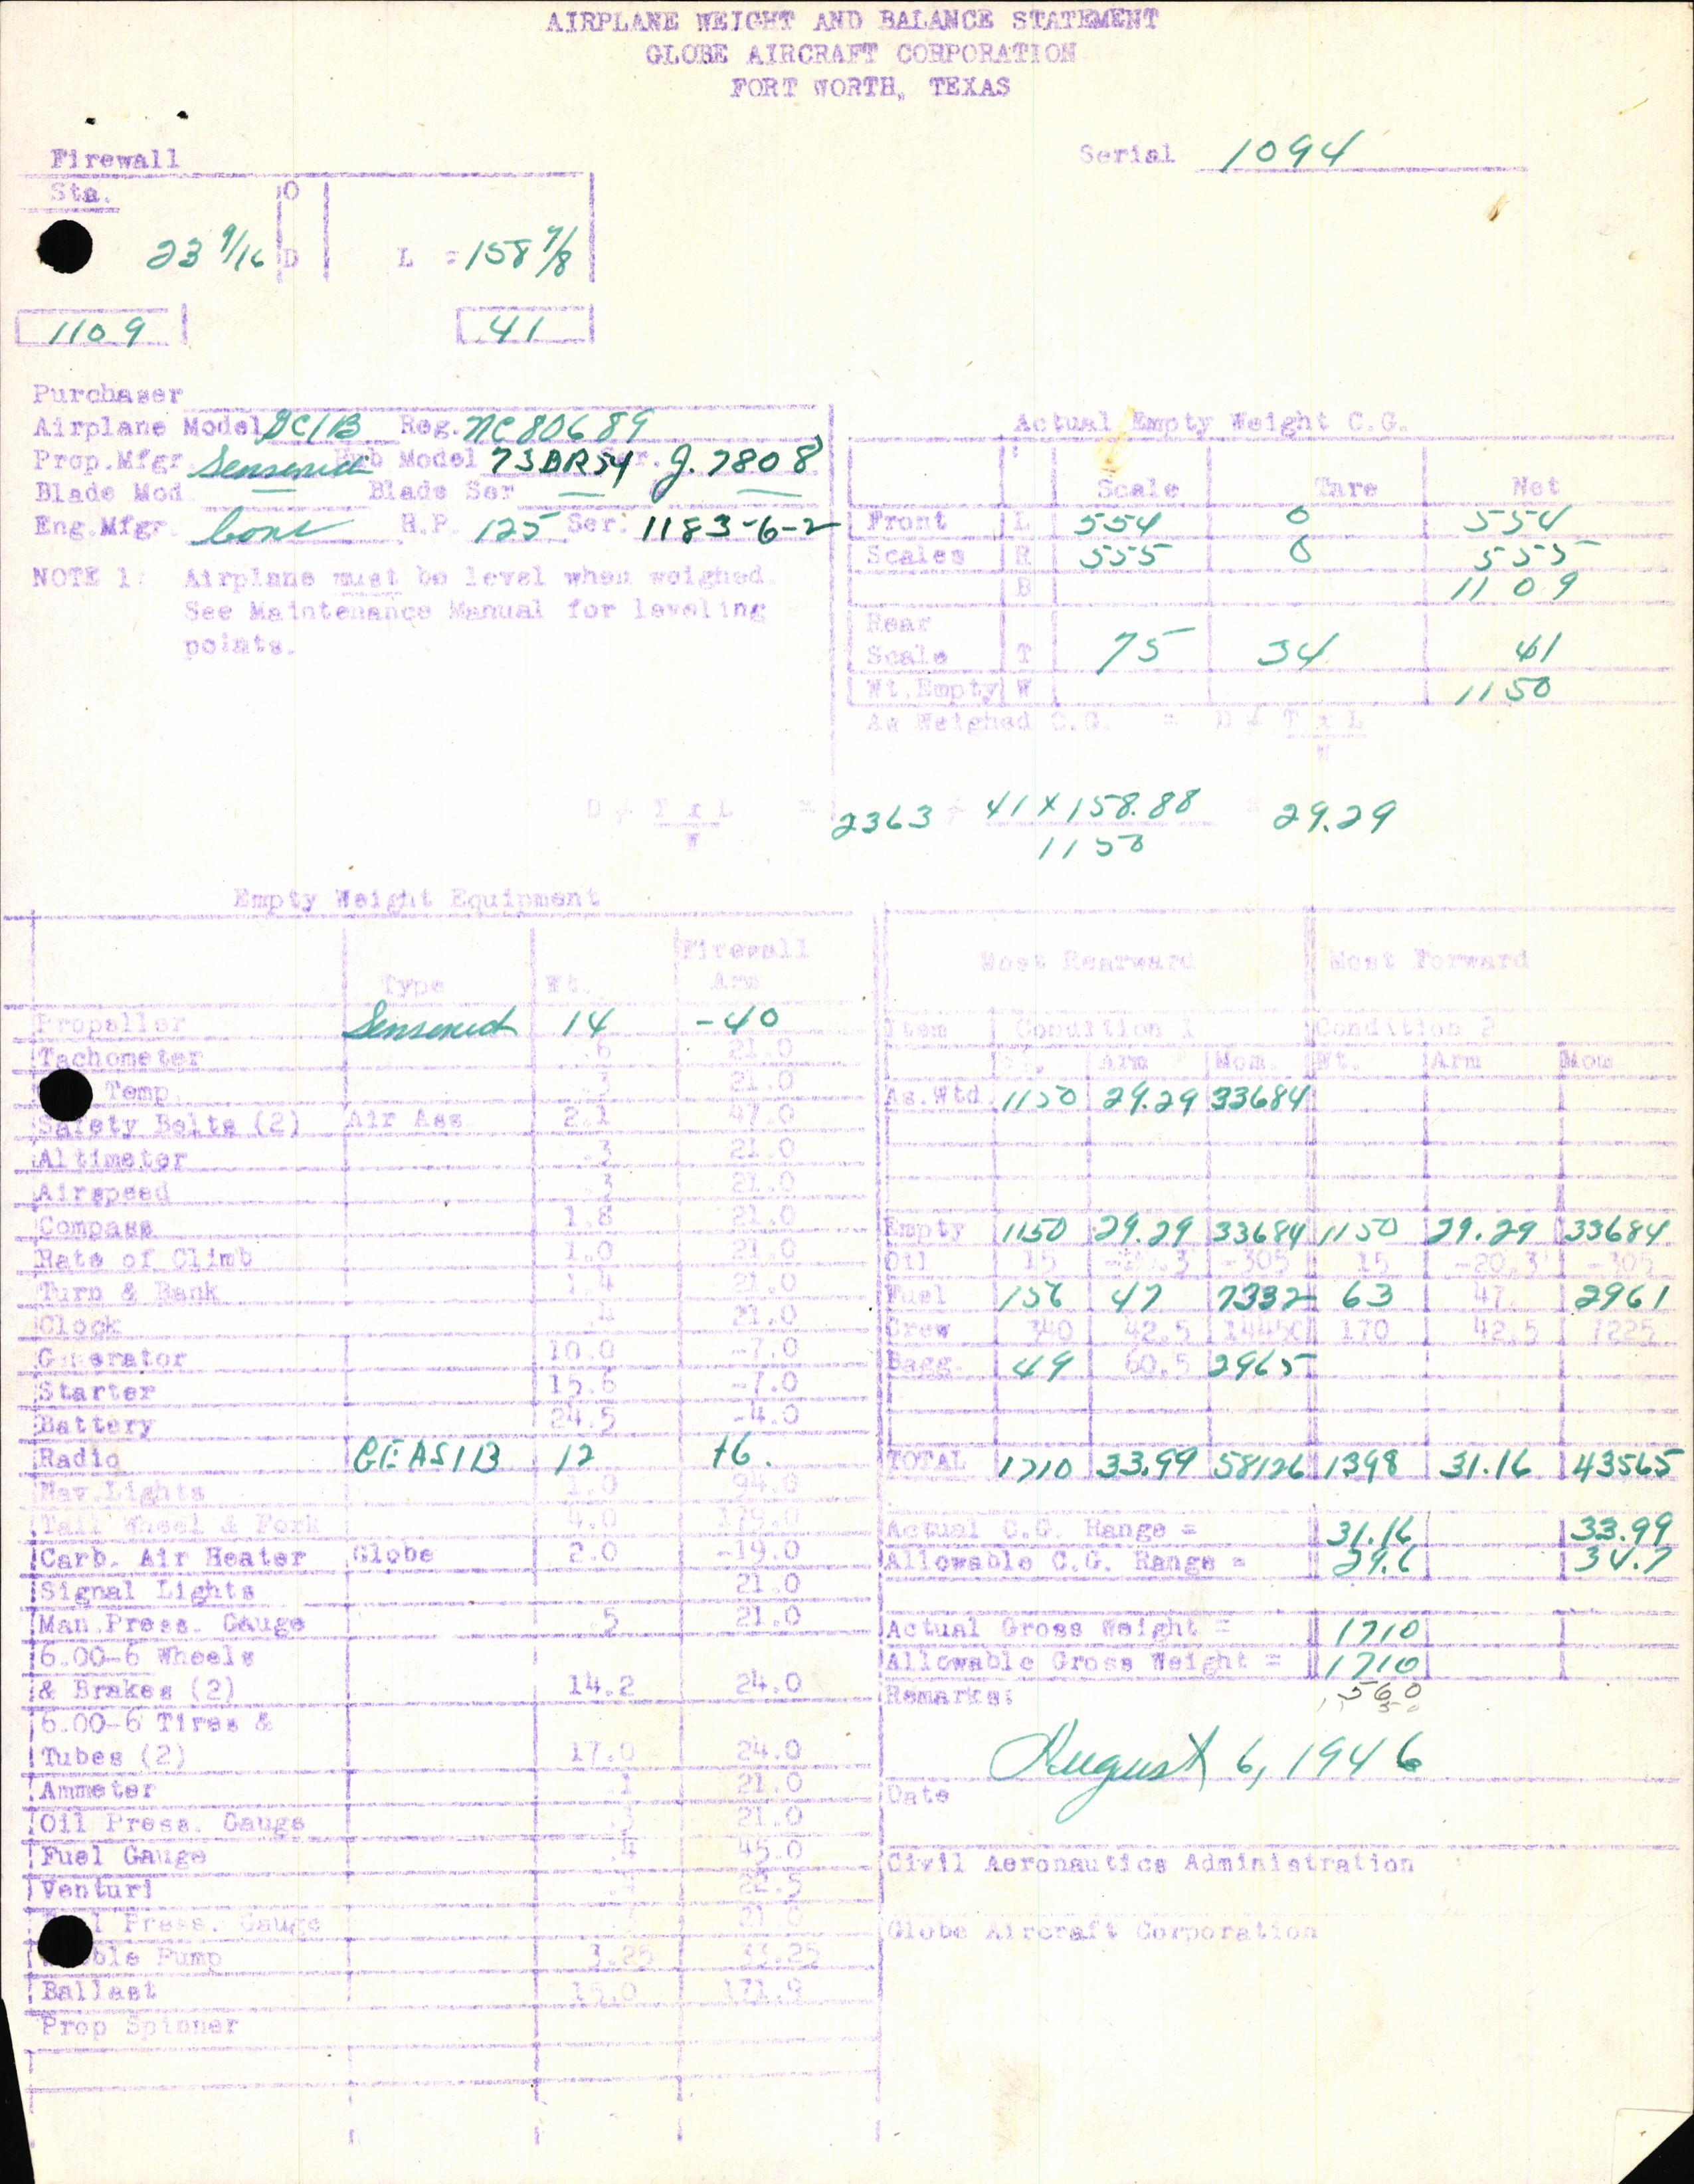 AIRPLANE WEIGHT AND BALANCE STATEMENT
GLOBE AIRCRAFT CORPORATION
FORT WORTH, TEXAS
Firewall
Serial 1094
Sta. O
23 9/16 D L = 158 7/8
1109 41
Purchaser
Airplane Model GC1B Reg. NC80689
Prop.Mfgr. Sensenich Hub Model 73BR54 Ser. J.7808
Blade Mod — Blade Ser — —
Eng.Mfgr. Cont H.P. 125 Ser: 1183-6-2
NOTE 1: Airplane must be level when weighed
See Maintenance Manual for leveling
points.
Actual Empty Weight C.G.
Scale Tare Net
Front L 554 0 554
Scales R 555 0 555
B 1109
Rear
Scale T 75 34 41
Wt.Empty W 1150
As Weighed C.G. = D + T x L
W
D + T x L = 2363 + 41 x 158.88 = 29.29
W 1150
Empty Weight Equipment
Type Wt. Firewall Arm
Propeller Sensenich 14 -40
Tachometer .6 21.0
Temp. .3 21.0
Safety Belts (2) Air Ass 2.1 47.0
Altimeter .3 21.0
Airspeed .3 21.0
Compass 1.8 21.0
Rate of Climb 1.0 21.0
Turn & Bank 1.4 21.0
Clock .4 21.0
Generator 10.0 -7.0
Starter 15.6 -7.0
Battery 24.5 -4.0
Radio GE AS1B 12 +6.
Nav.Lights 1.0 94.6
Tail Wheel & Fork 4.0 179.0
Carb. Air Heater Globe 2.0 -19.0
Signal Lights 21.0
Man.Press. Gauge .5 21.0
6.00-6 Wheels
& Brakes (2) 14.2 24.0
6.00-6 Tires &
Tubes (2) 17.0 24.0
Ammeter .1 21.0
Oil Press. Gauge .3 21.0
Fuel Gauge .4 45.0
Venturi 22.5
Press. Gauge
Pump 3.25 33.25
Ballast 15.0 171.9
Prop Spinner
Most Rearward Most Forward
Item Condition 1 Condition 2
Arm Mom. Wt. Arm Mom
As.Wtd 1150 29.29 33684
Empty 1150 29.29 33684 1150 29.29 33684
Oil 15 -305 15 -20.3 -305
Fuel 156 47 7332 63 47. 2961
Crew 340 42.5 14450 170 42.5 7225
Bagg. 49 60.5 2965
TOTAL 1710 33.99 58126 1398 31.16 43565
Actual C.G. Range = 31.16 33.99
Allowable C.G. Range = 29.6 34.7
Actual Gross Weight = 1710
Allowable Gross Weight = 1710
Remarks: 560
August 6, 1946
Date
Civil Aeronautics Administration
Globe Aircraft Corporation